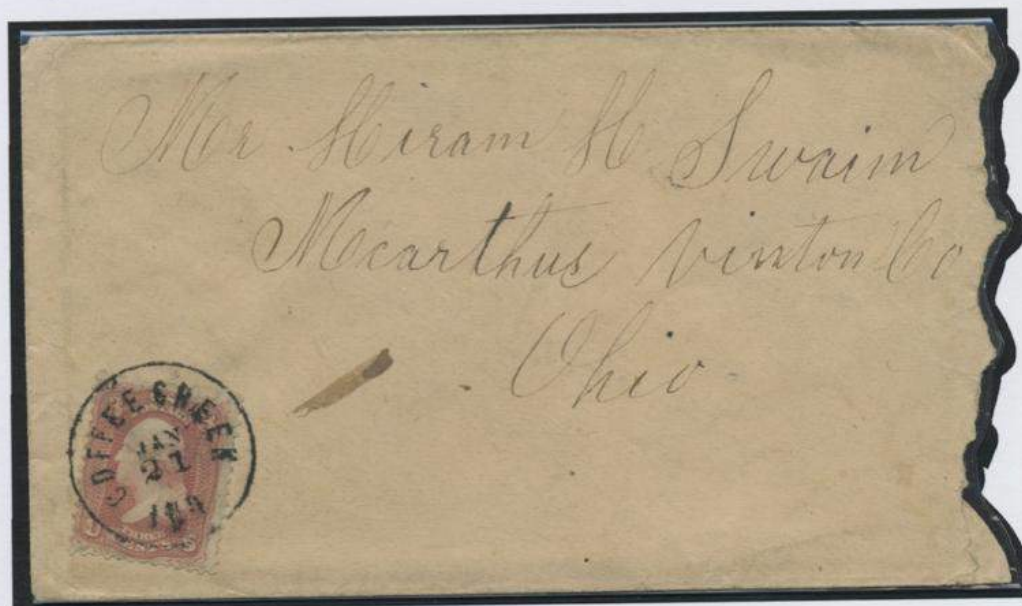 Mr Hiram H Swaim
Mcarthur Vinton Co
Ohio
COFFEE CREEK
JAN
21